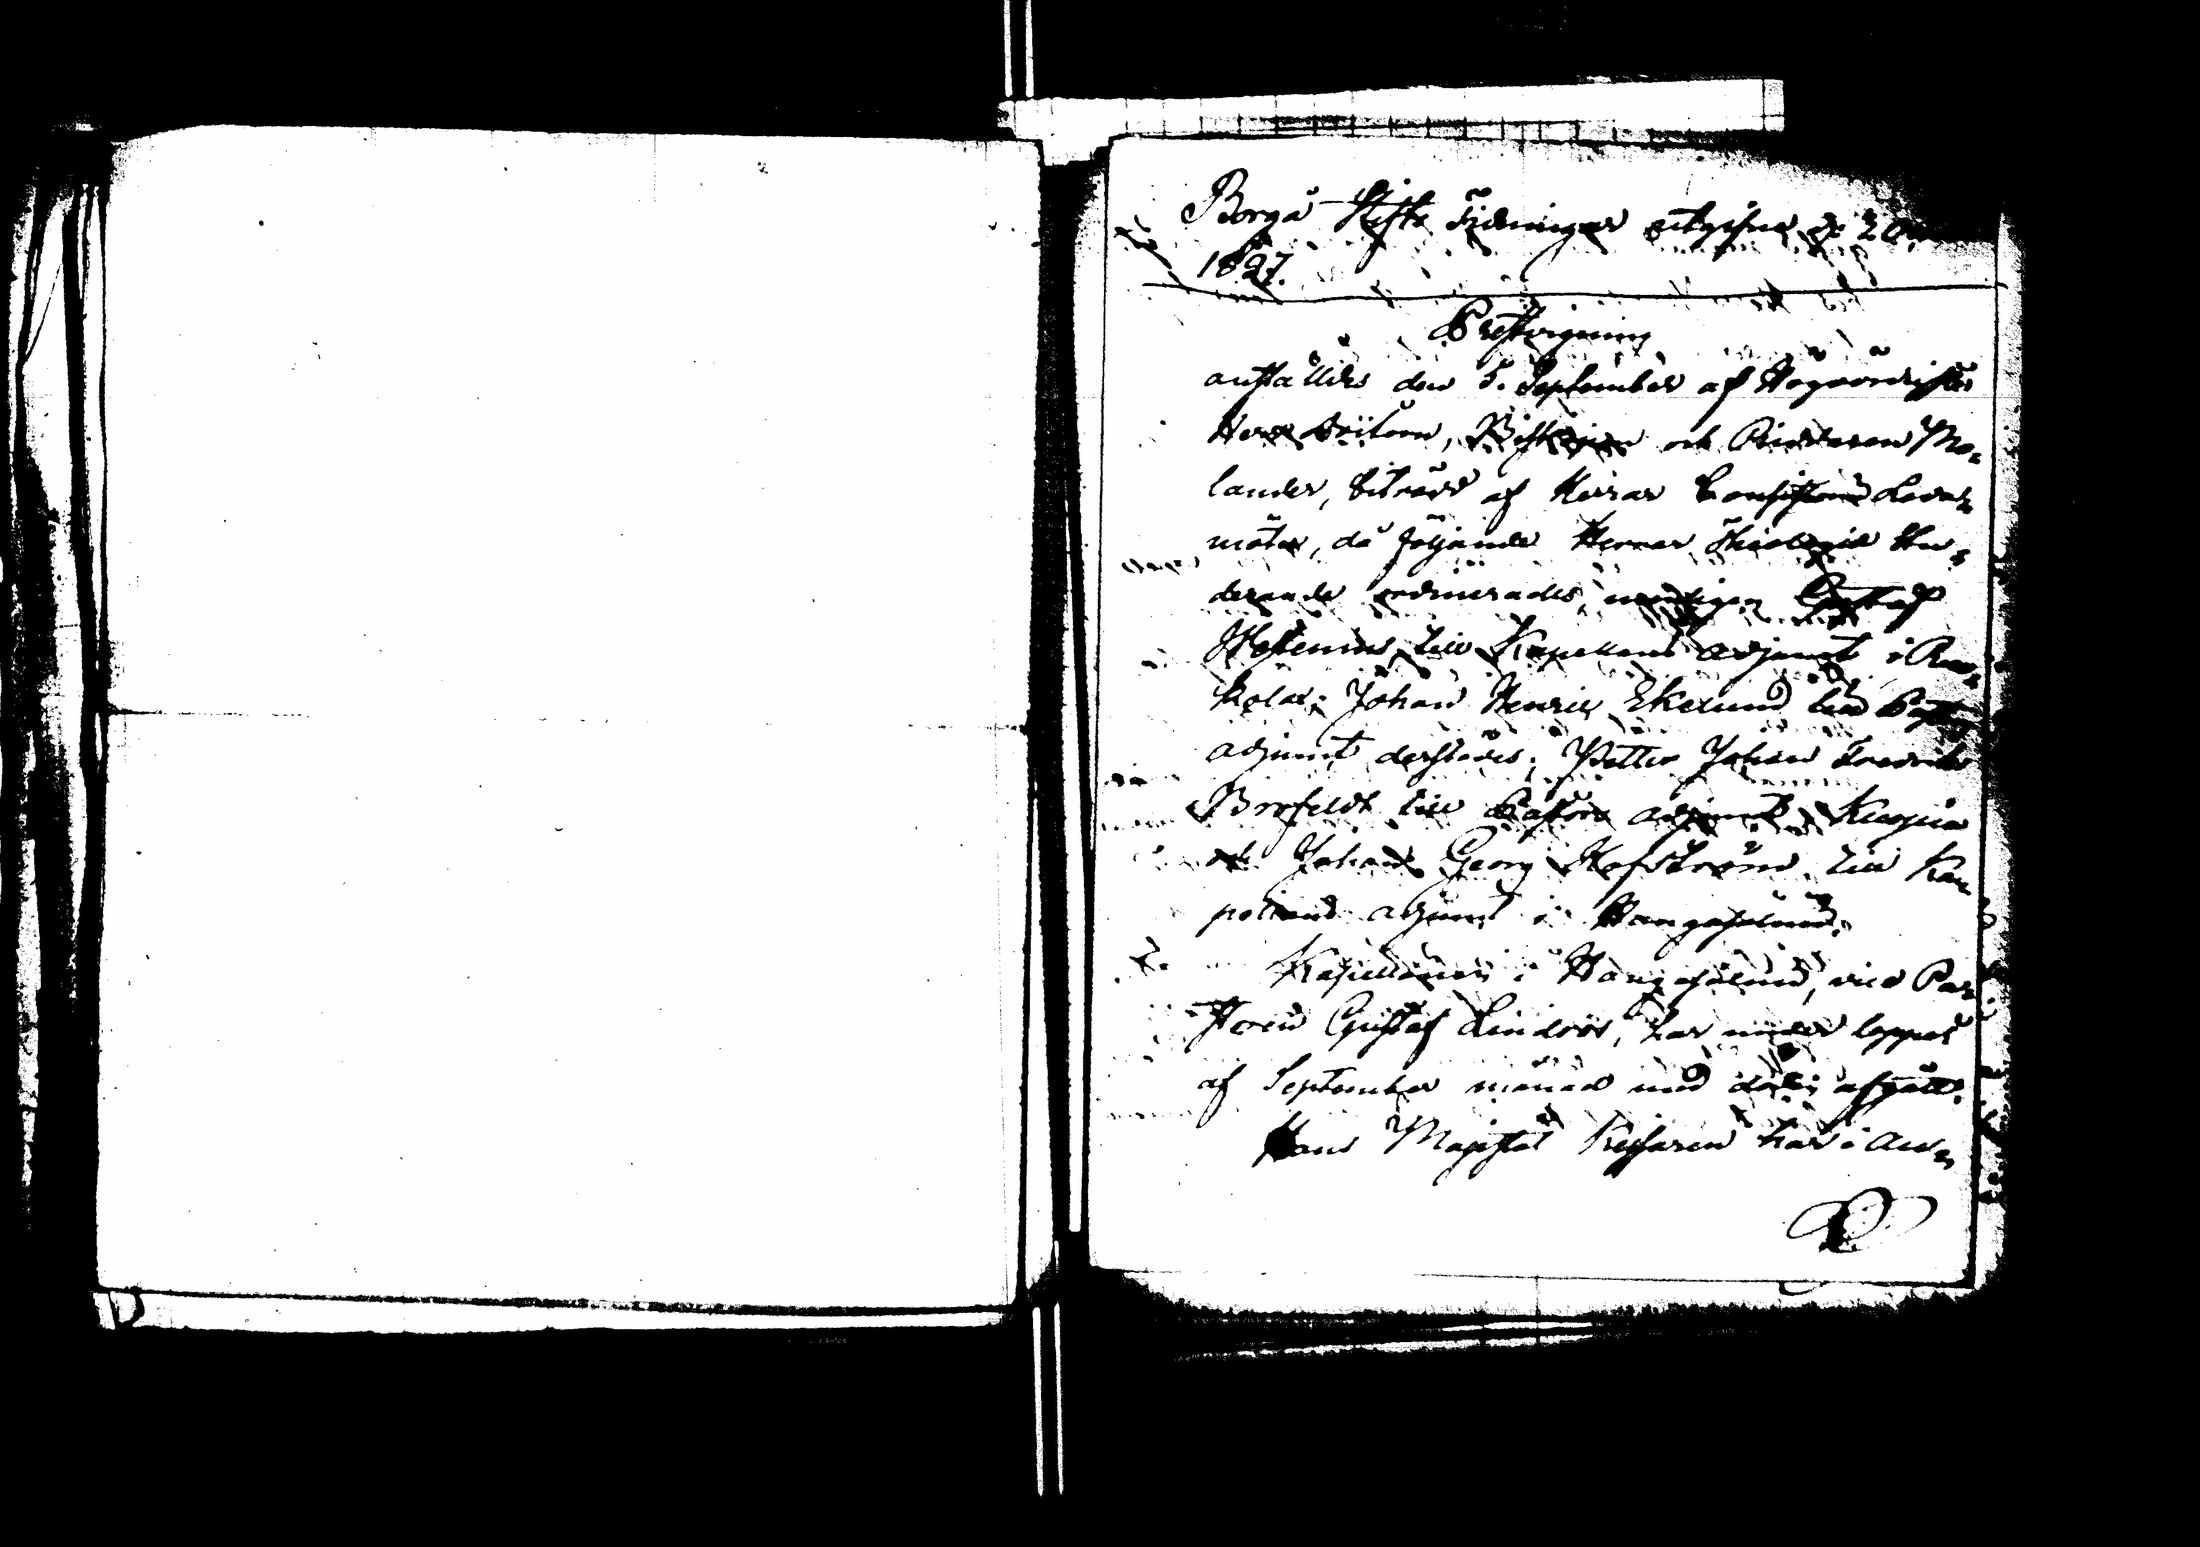 Borgå Stifts Tidningar utgifne d: 2 Oc
1827.
Prestvigning
anställdes den 5. September af Högvördigste
Herr Doctorn, Biskopen och Riddaren Mo-
lander, biträdd af Herrar Consistorii Leda-
möter, då följande Herrar Theologie Stu-
derande ordinerades, nemligen Gustaf
till Kapellans adjunct i Ruo-
kolax; Johan Henric Ekelund till Pastors
adjunct derstädes; Petter Johan Fredrik
Brofeldt till Pastors adjunct i Kuopio
och Johan Georg Hofström till Ka-
pellans adjunct i Haugasalmi.
Kapellanen i Haugasalmi, vice Pa-
storn Gustaf Lindroos, har under loppet
af September månad med döden afgått.
Hans Majestät Kejsaren har i An-